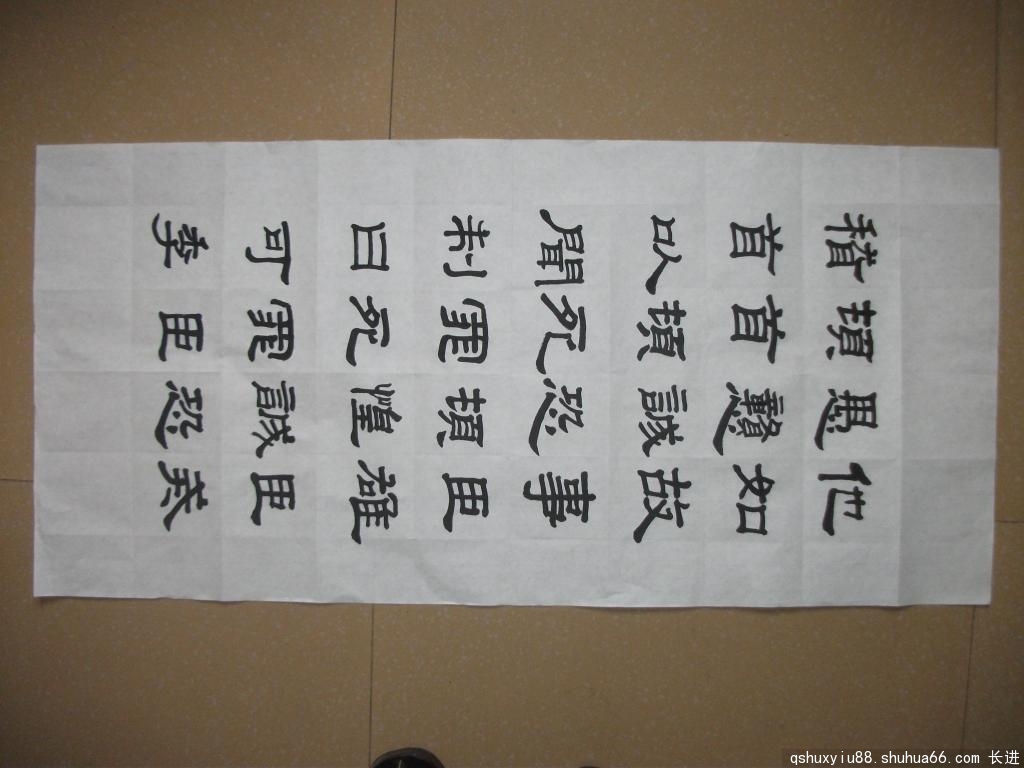 他如故事臣雄臣奏
愚戇誠恐頓惶誠恐
頓首頓死罪死罪臣
稽首以聞制曰可季
qshuxyiu88.shuhua66.com 长进